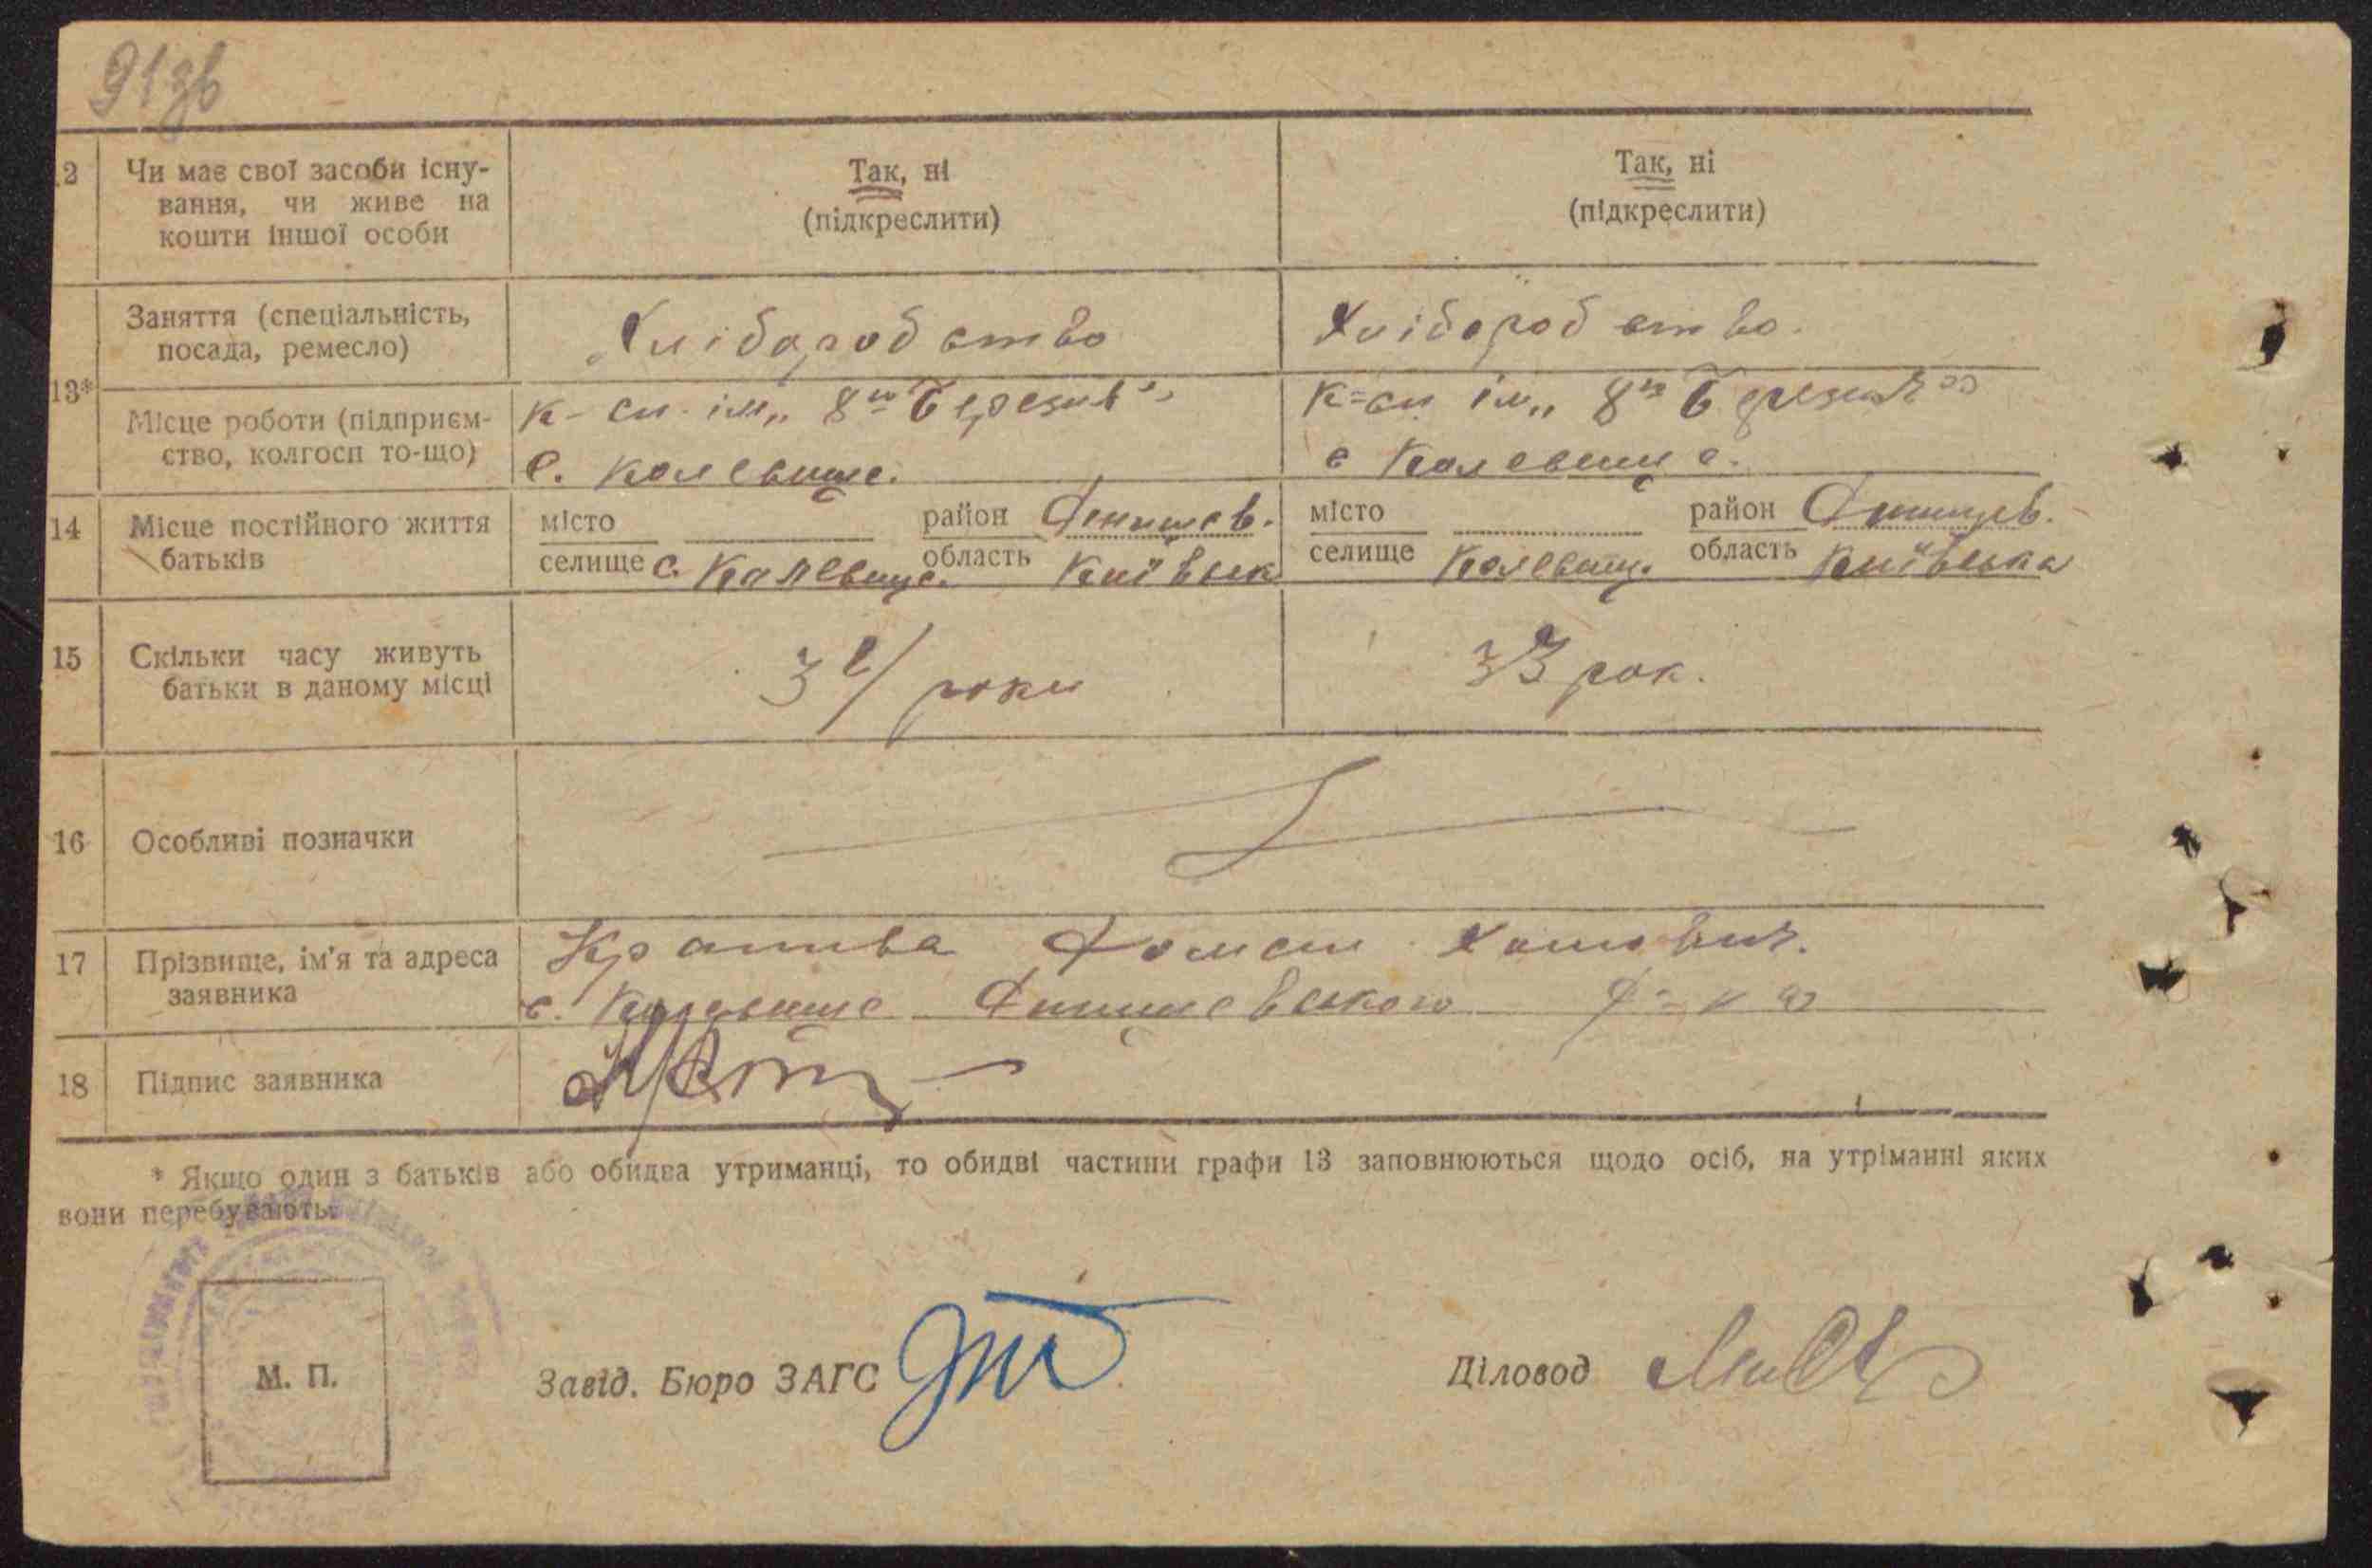 91 зв
2 Чи має свої засоби існу-
вання, чи живе на
кошти іншої особи
Так, ні
(підкреслити)
Так, ні
(підкреслити)
13*
Заняття (спеціальність,
посада, ремесло)
Хліборобство
Хліборобство.
Місце роботи (підприєм-
ство, колгосп то-що)
к-сп. ім. „8го Березня"
с. Калевище.
к=сп ім. „8го Березня"
с Калевище.
14 Місце постійного життя
батьків
місто район
селище с. Калевище. область Київськ
місто район
селище Калевищ. область Київська
15 Скільки часу живуть
батьки в даному місці
роки
33 рок.
16 Особливі позначки
17 Прізвище, ім'я та адреса
заявника
Кратива
с. Калевище
18 Підпис заявника
* Якщо один з батьків або обидва утриманці, то обидві частини графи 13 заповнюються щодо осіб, на утріманні яких
вони перебувають.
М. П.
Завід. Бюро ЗАГС
Діловод